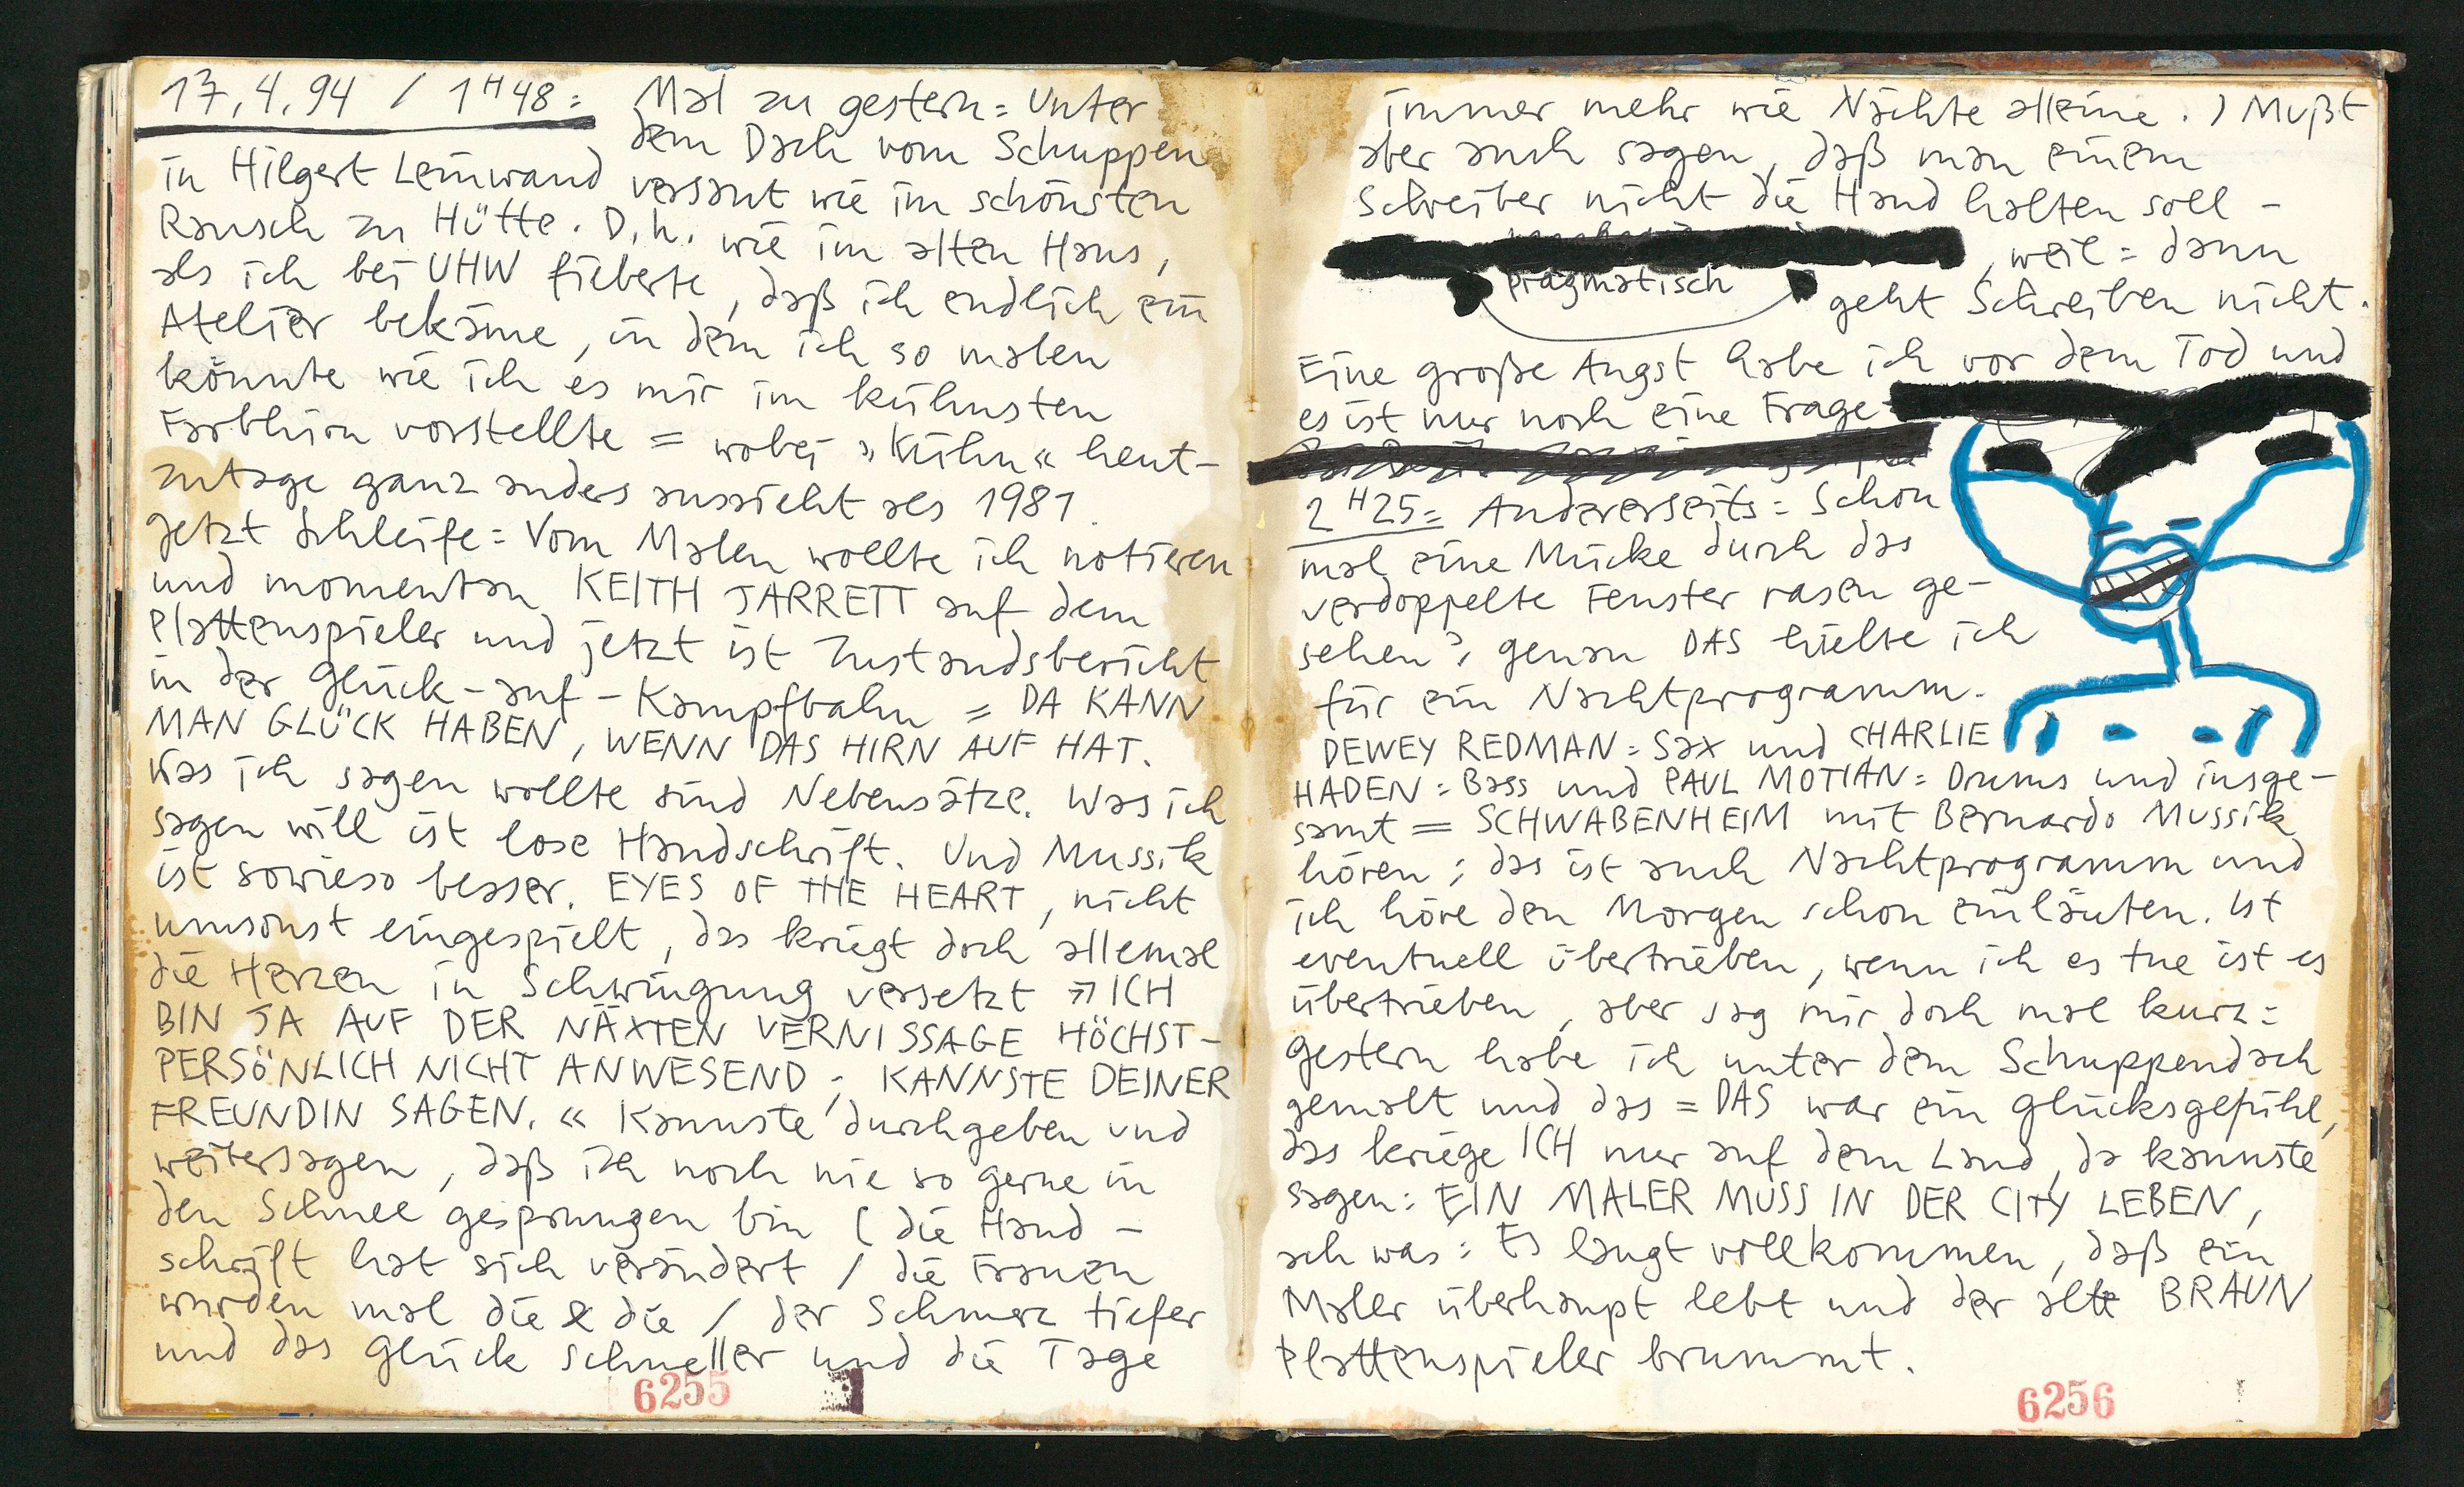 17.4.94 / 1H48: Mal zu gestern = Unter
dem Dach vom Schuppen
in Hilgert Leinwand versaut wie im schönsten
Rausch zu Hütte. D.h. wie im alten Haus,
als ich bei UHW fieberte, daß ich endlich ein
Atelier bekäme, in dem ich so malen
könnte wie ich es mir im kühnsten
Farbhirn vorstellte = wobei »Kühn« heut-
zutage ganz anders aussieht als 1981.
Jetzt Schleife = Vom Malen wollte ich notieren
und momentan KEITH JARRETT auf dem
Plattenspieler und jetzt ist Zustandsbericht
in der Glück-auf-Kampfbahn = DA KANN
MAN GLÜCK HABEN, WENN DAS HIRN AUF HAT.
Was ich sagen wollte sind Nebensätze. Was ich
sagen will ist lose Handschrift. Und Mussik
ist sowieso besser. EYES OF THE HEART, nicht
umsonst eingespielt, das kriegt doch allemal
die Herzen in Schwingung versetzt »ICH
BIN JA AUF DER NÄXTEN VERNISSAGE HÖCHST-
PERSÖNLICH NICHT ANWESEND; KANNSTE DEINER
FREUNDIN SAGEN.« Kannste durchgeben und
weitersagen, daß ich noch nie so gerne in
den Schnee gesprungen bin (die Hand-
schrift hat sich verändert / die Frauen
wurden mal die & die / der Schmerz tiefer
und das Glück schneller und die Tage
6255
immer mehr wie Nächte alleine.) Mußt
aber auch sagen, daß man einem
Schreiber nicht die Hand halten soll -
, weil = dann
pragmatisch geht Schreiben nicht.
Eine große Angst habe ich vor dem Tod und
es ist nur noch eine Frage
2H25= Andererseits = Schon
mal eine Mücke durch das
verdoppelte Fenster rasen ge-
sehen?, genau DAS hielte ich
für ein Nachtprogramm.
DEWEY REDMAN = Sax und CHARLIE
HADEN = Bass und PAUL MOTIAN = Drums und insge-
samt = SCHWABENHEIM mit Bernardo Mussik
hören; das ist auch Nachtprogramm und
ich höre den Morgen schon einläuten. Ist
eventuell übertrieben, wenn ich es tue ist es
übertrieben, aber sag mir doch mal kurz =
gestern habe ich unter dem Schuppendach
gemalt und das = DAS war ein Glücksgefühl,
das kriege ICH nur auf dem Land, da kannste
sagen: EIN MALER MUSS IN DER CITY LEBEN,
ach was: Es langt vollkommen, daß ein
Maler überhaupt lebt und der alte BRAUN
Plattenspieler brummt.
6256